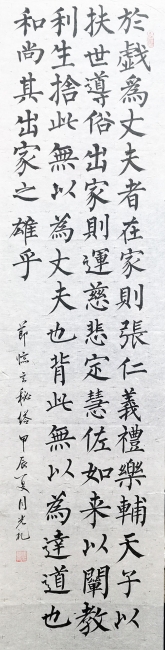 於戲為丈夫者在家則張仁義禮樂輔天子以
扶世導俗出家則運慈悲定慧佐如来以闡教
利生捨此無以為丈夫也背此無以為達道也
和尚其出家之雄乎
節臨玄秘塔 甲辰夏月光礼